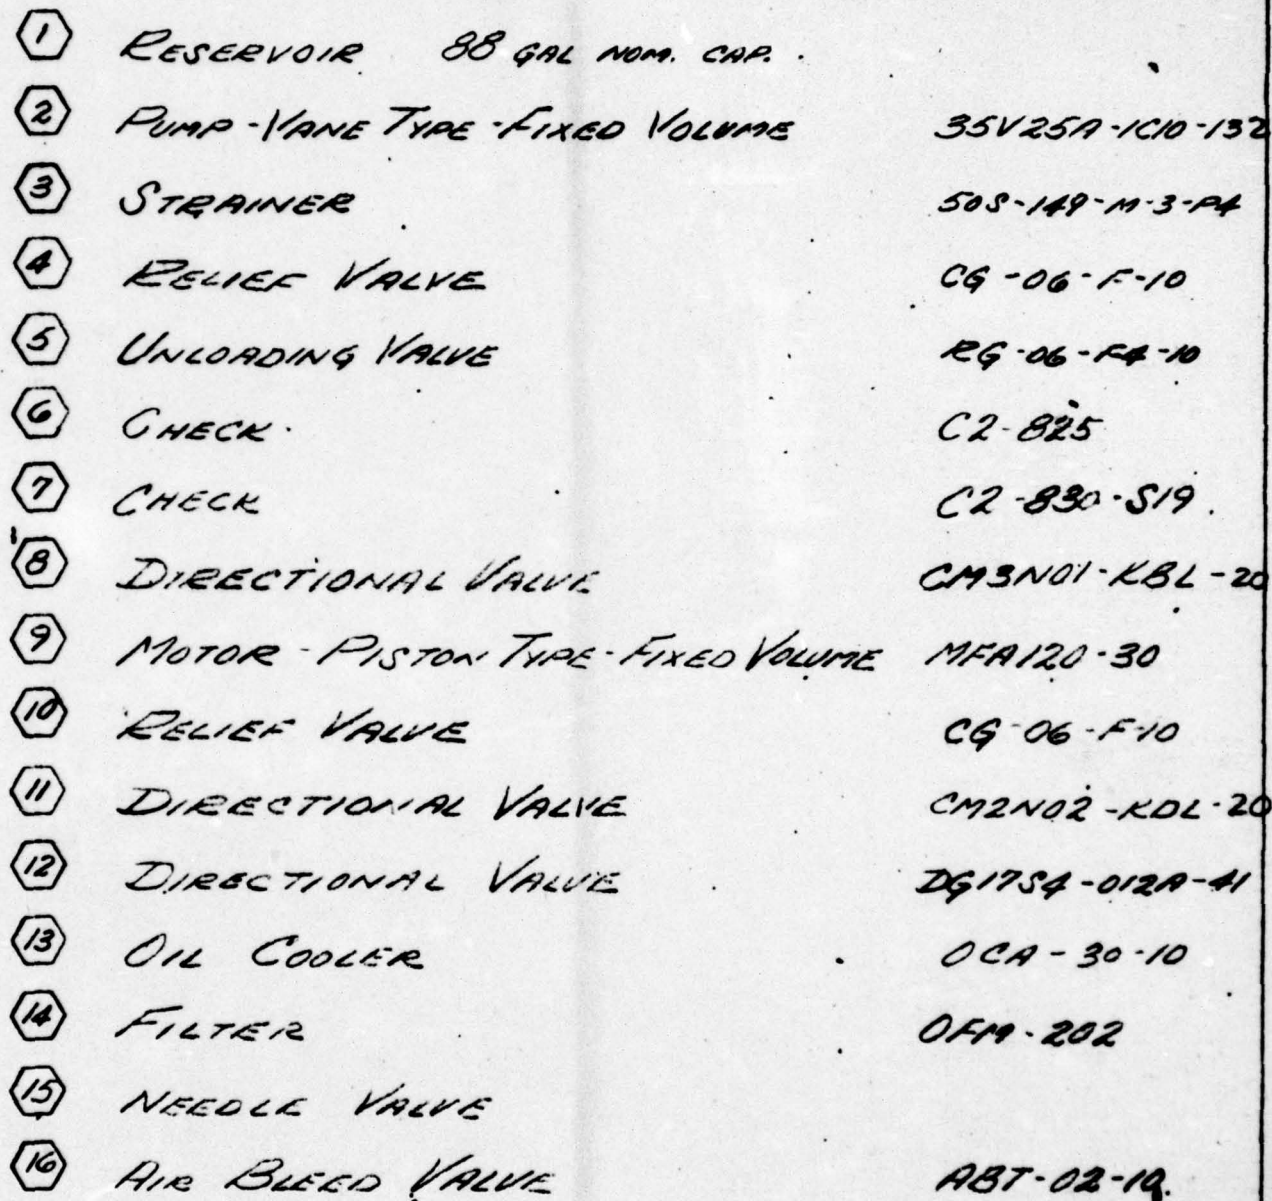 1 RESERVOIR 88 GAL NOM. CAP.
2 PUMP-VANE TYPE-FIXED VOLUME 35V25A-1C10-132
3 STRAINER 50S-149-M-3-P4
4 RELIEF VALVE CG-06-F-10
5 UNLOADING VALVE RG-06-F4-10
6 CHECK C2-825
7 CHECK C2-830-S19
8 DIRECTIONAL VALVE CM3N01-KBL-20
9 MOTOR-PISTON TYPE-FIXED VOLUME MFA120-30
10 RELIEF VALVE CG-06-F-10
11 DIRECTIONAL VALVE CM2N02-KDL-20
12 DIRECTIONAL VALVE DG17S4-012A-41
13 OIL COOLER OCA-30-10
14 FILTER OFM-202
15 NEEDLE VALVE
16 AIR BLEED VALVE ABT-02-10